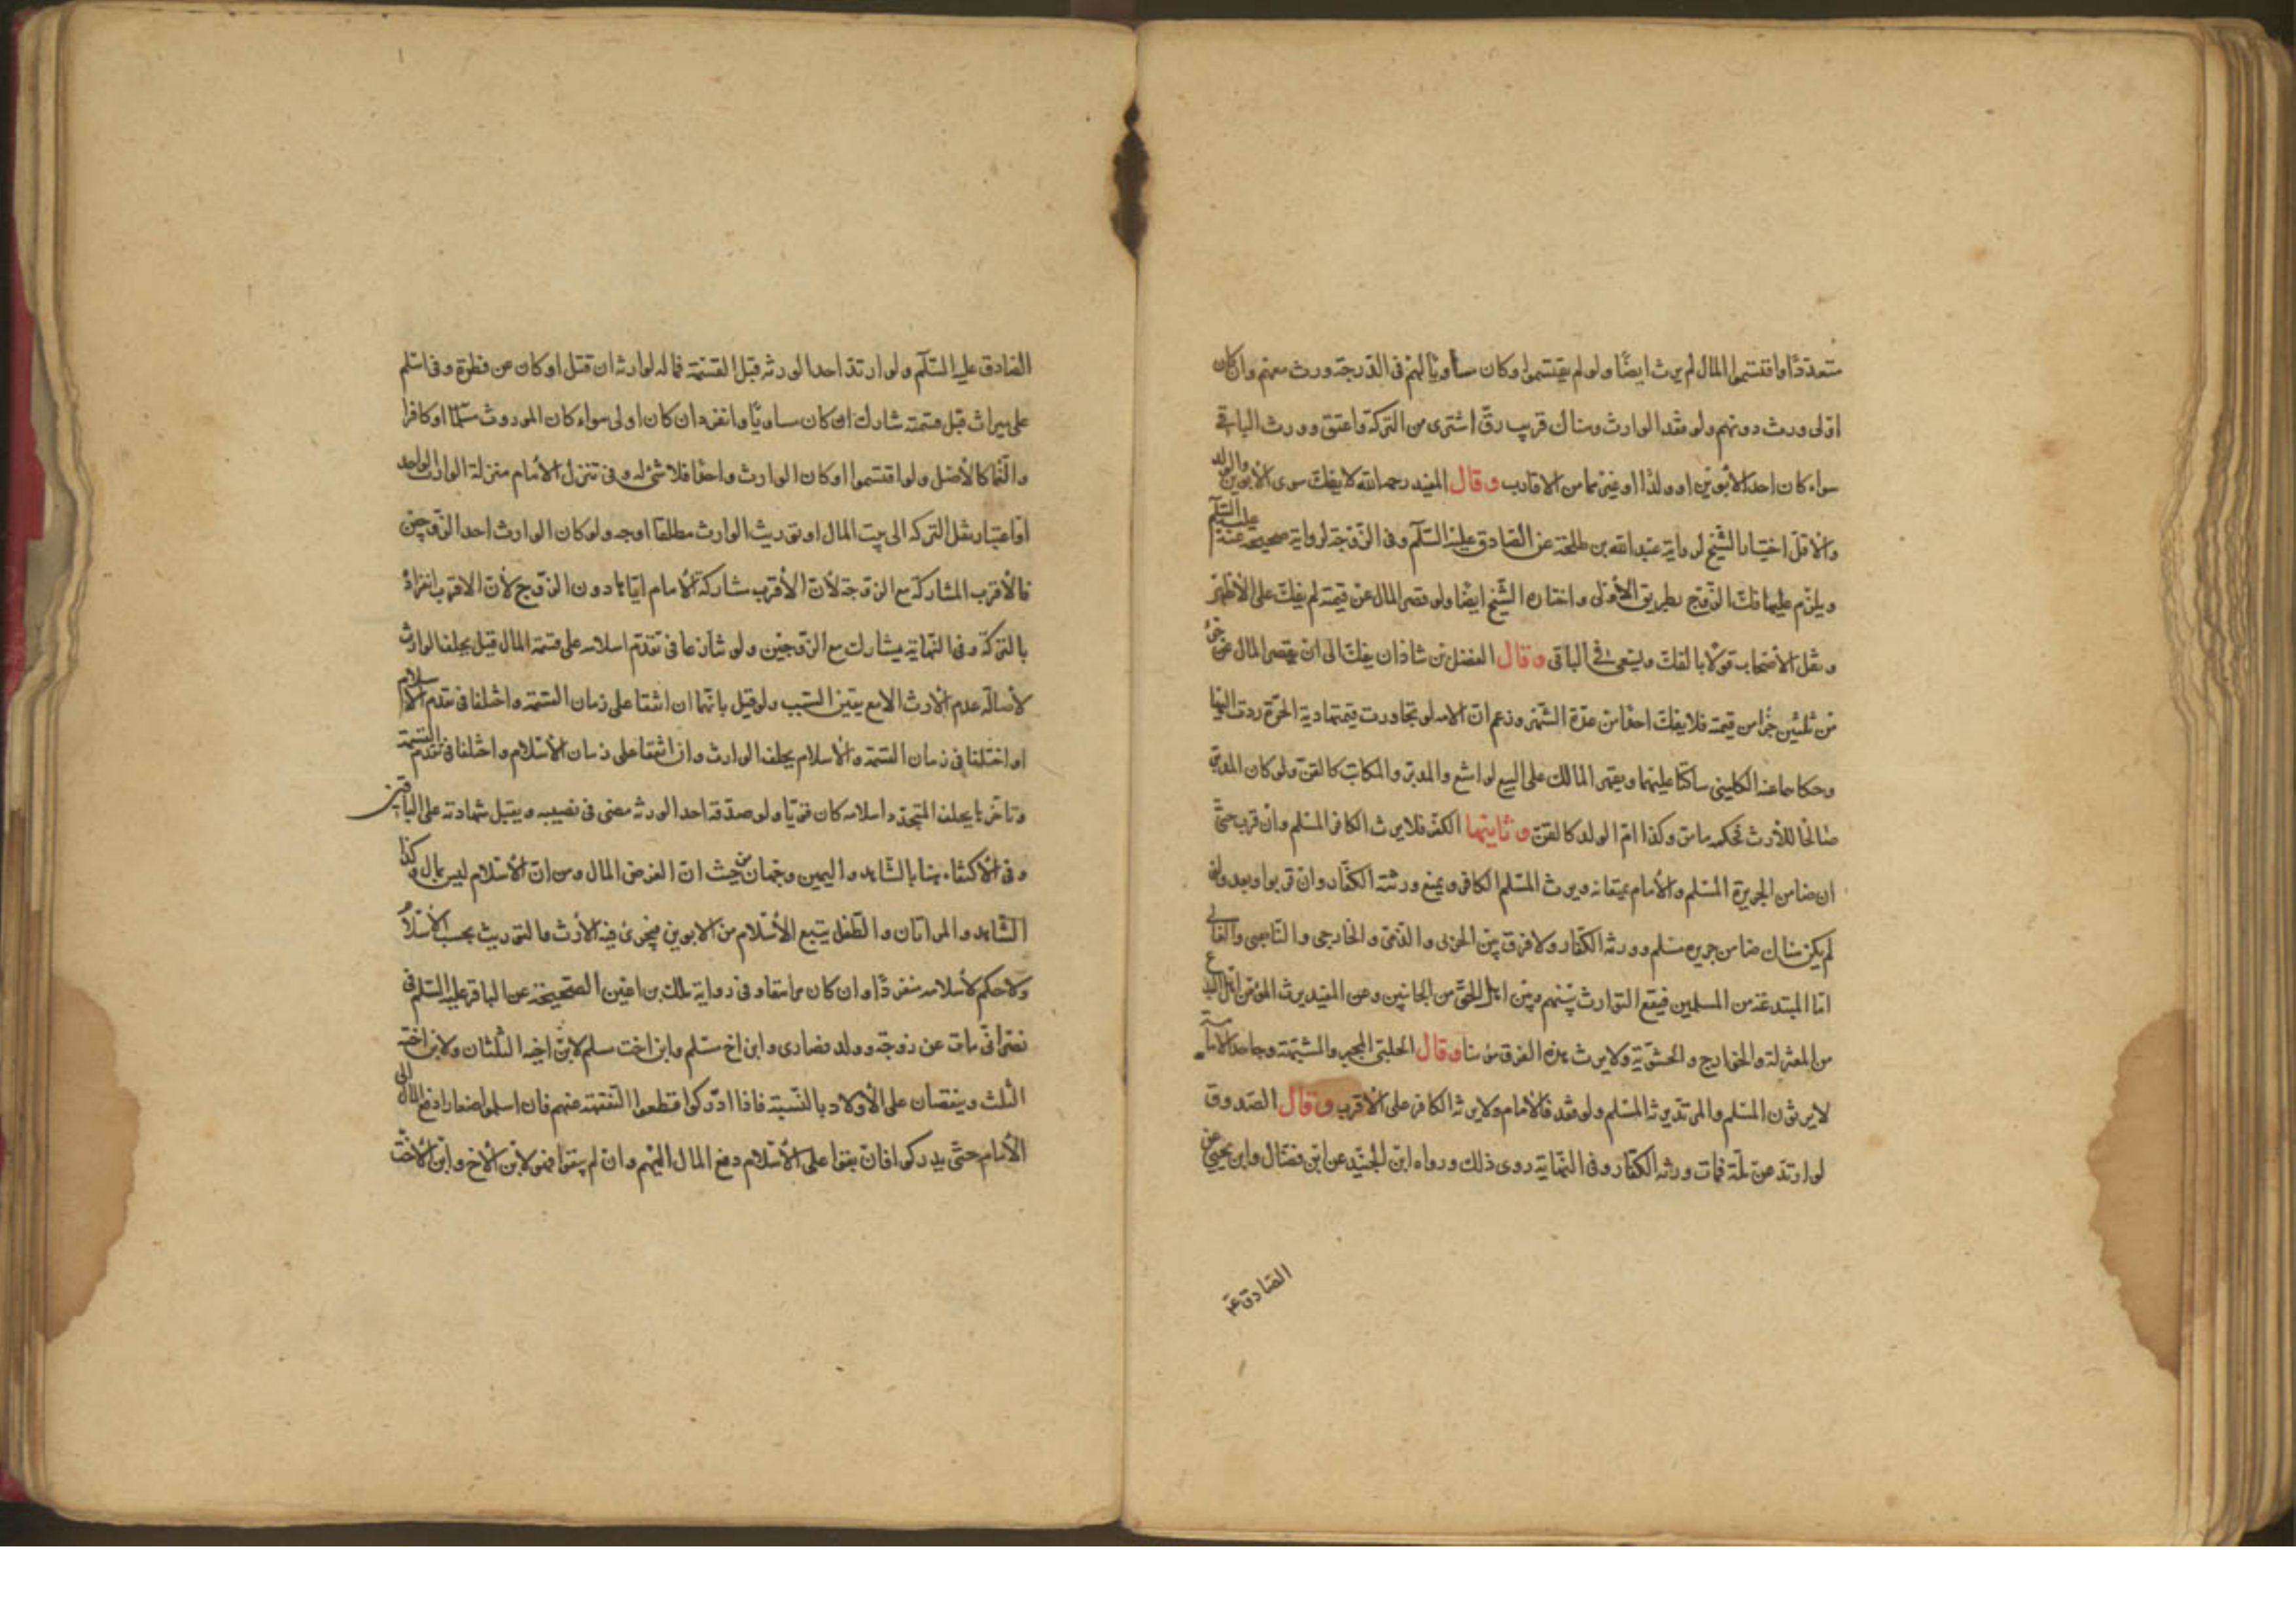 متعددا واقتسموا المال لم يرث ايضا ولو لم يقتسموا وكان مساويا لهم فى الدرجة ورث معهم وان كان
اولى ورث دونهم ولو فقد الوارث وهناك قريب رق اشترى من التركة واعتق وورث الباقى
سواء كان احد الأبوين او ولدا او غيرهما من الاقارب وقال المفيد رحمه الله لا يفك سوى الابوين والولد
والاول اختيار الشيخ لرواية عبد الله بن طلحة عن الصادق عليه السلم وفى الزوجة لرواية صحيحة عنه عليه السلم
ويلزم عليها فك الزوج بطريق الأولى واختاره الشيخ ايضا ولو قصر المال عن قيمته لم يفك على الأظهر
ونقل الأصحاب قولا بالفك ويسعى فى الباقى وقال الفضل بن شاذان يفك الى ان يقصر المال عن جزء
من ثلثين جزا من قيمته فلا يفك اخذا من عدة الشهر وزعم ان الامه لو تجاوزت قيمتها دية الحرة ردت اليها
وحكاهما عنه الكلينى ساكتا عليهما ويقهر المالك على البيع لو امتنع والمدبر والمكاتب كالقن ولو كان المدبر
صالحا للأرث فحكمه ما مر وكذا ام الولد كالقن وثانيها الكفر فلا يرث الكافر المسلم وان قرب حتى
ان ضامن الجريرة المسلم والأمام يمنعانه ويرث المسلم الكافر ويمنع ورثته الكفار وان قربوا وبعد ولو
لم يكن هناك ضامن جريره مسلم وورثه الكفار ولا فرق بين الحربى والذمى والخارجى والناصبى والغالى
اما المبتدعة من المسلمين فيقع التوارث بينهم وبين اهل الحق من الجانبين وعن المفيد يرث المؤمن اهل البدع
من المعتزلة والخوارج والحشوية ولا يرث هذه الفرق مؤمنا وقال الحلبى المجبر والمشبهة وجاحد الامامة
لا يرثون المسلم والمرتد يرثه المسلم ولو فقد فالامام ولا يرثه الكافر على الأقرب وقال الصدوق
لو ارتد عن ملة فمات ورثه الكفار وفى النهاية روى ذلك ورواه ابن الجنيد عن ابن فضال وابن يحيى عن
الصادق ع
الصادق عليه السلم ولو ارتد احد الورثه قبل القسمة فماله لوارثه ان قتل او كان عن فطرة وفى اسلم
على ميراث قبل قسمته شارك ان كان مساويا وانفرد ان كان اولى سواء كان الموروث مسلما او كافرا
والنما كالأصل ولو اقتسموا او كان الوارث واحدا فلا شئ له وفى تنزل الأمام منزلة الوارث الواحد
او اعتبار نقل التركه الى بيت المال او توريث الوارث مطلقا اوجه ولو كان الوارث احد الزوجين
فالأقرب المشاركة مع الزوجة لأن الأقرب مشاركة الأمام اياها دون الزوج لأن الاقرب انفراده
بالتركة وفى النهاية يشارك مع الزوجين ولو تنازعا فى تقدم اسلامه على قسمة المال قيل يحلف الوارث
لأصالة عدم الأرث الا مع تيقن السبب ولو قيل بانهما ان اتفقا على زمان القسمة واختلفا فى تقدم الاسلام
او اختلفا فى زمان القسمة والأسلام يحلف الوارث وان اتفقا على زمان الأسلام واختلفا فى تقدم القسمة
وتاخرها يحلف المتجدد اسلامه كان قويا ولو صدقه احد الورثه مضى فى نصيبه ويقبل شهادته على الباقين
وفى الأكتفاء هنا بالشاهد واليمين وجهان من حيث ان الغرض المال ومن ان الأسلام ليس بمال وكذا
الشاهد والمراتان والطفل يتبع الأسلام من الابوين فيجرى فيه الأرث والتوريث بحسب الأسلام
ولا حكم لأسلامه منفردا وان كان مراهقا وفى رواية ملك بن اعين الصحيحة عن الباقر عليه السلم فى
نصرانى مات عن زوجة وولد نصارى وابن اخ مسلم وابن اخت مسلم لابن اخيه الثلثان ولابن اخته
الثلث وينفقان على الأولاد بالنسبة فاذا ادركوا قطعوا النفقة عنهم فان اسلموا صغارا دفع المال الى
الأمام حتى يدركوا فان بقوا على الأسلام دفع المال اليهم وان لم يبقوا فهو لابن الأخ وابن الأخت